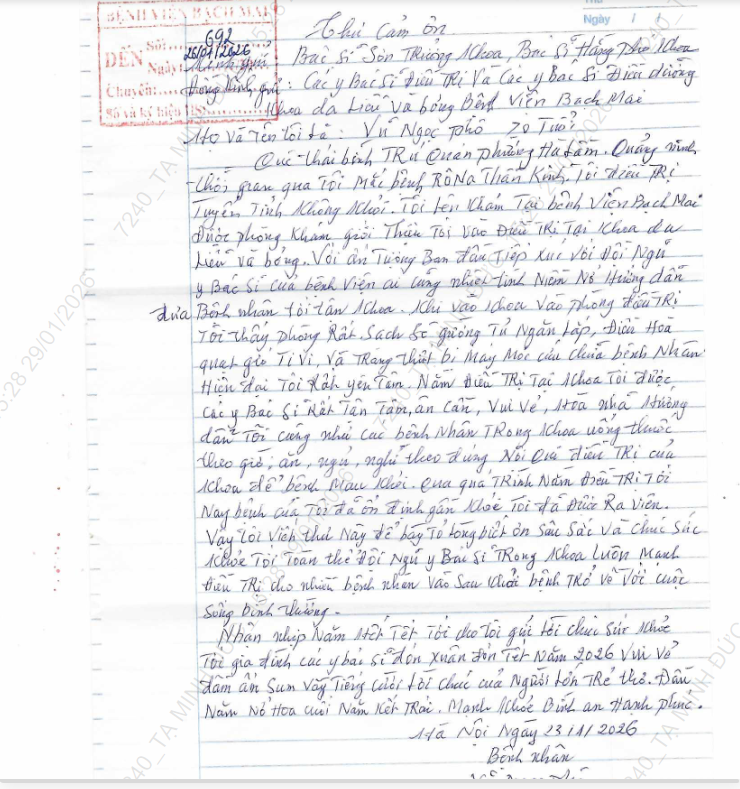 BỆNH VIỆN BẠCH MAI
ĐẾN Số: 692
Ngày 26/01/2026
Chuyển:
Số và ký hiệu HS:
Ngày / /
Thư Cảm ơn
Kính gửi: Bác Sĩ Sơn Trưởng Khoa, Bác Sĩ Hằng phó Khoa
Đồng Kính gửi: Các y Bác Sĩ Điều Trị Và Các y bác Sĩ Điều dưỡng
Khoa da Liễu Và bỏng Bệnh Viện Bạch Mai
Họ Và Tên Tôi là: Vũ Ngọc phô 70 Tuổi
Quê thái bình TRú Quán phường Hà Lầm. Quảng ninh
thời gian qua Tôi Mắc bệnh RôNa Thần Kinh. Tôi điều TRị
Tuyến Tỉnh Không Khỏi. Tôi lên Khám Tại bệnh Viện Bạch Mai
Được phòng Khám giới Thiệu Tôi vào Điều TRị Tại Khoa da
Liễu và bỏng. Với ấn Tượng Ban đầu Tiếp Xúc Với Đội Ngũ
y Bác Sĩ của bệnh Viện vô cùng nhiệt tình Niềm Nở Hướng dẫn
đưa Bệnh nhân tới tận Khoa. Khi vào Khoa Vào phòng điều TRị
Tôi thấy phòng Rất Sạch Sẽ giường Tủ Ngăn Lắp, Điều Hòa
quạt gió Ti Vi, Và Trang thiết bị Máy Móc cứu chữa bệnh Nhân
Hiện đại Tôi Rất yên Tâm. Nằm Điều TRị Tại Khoa Tôi được
Các y Bác Sĩ Rất Tận Tâm, ân Cần, Vui Vẻ, Hòa nhã Hướng
dẫn Tôi cũng như các bệnh Nhân TRong Khoa uống thuốc
theo giờ, ăn, ngủ, nghỉ theo đúng Nội Qui điều TRị của
Khoa để bệnh Mau Khỏi. Qua quá TRình Nằm Điều TRị Tới
Nay bệnh của Tôi đã ổn định gần Khỏe Tôi đã Được Ra Viện.
Vậy Tôi Viết thư Này để bày Tỏ lòng biết ơn Sâu Sắc Và chúc Sức
Khỏe Tới Toàn thể Đội Ngũ y Bác Sĩ TRong Khoa Luôn Mạnh
Điều TRị cho nhiều bệnh nhân Vào Sau Khỏi bệnh TRở Về Với cuộc
Sống bình thường.
Nhân nhịp Năm Hết Tết Tới cho tôi gửi lời chúc Sức Khỏe
Tới gia đình các y bác Sĩ đón Xuân đón Tết Năm 2026 Vui Vẻ
đầm ấm Sum Vầy Tiếng Cười lời chúc của Người lớn TRẻ thơ. Đầu
Năm Nở Hoa cuối Năm Kết TRái. Mạnh Khỏe Bình an Hạnh phúc.
Hà Nội Ngày 23/1/2026
Bệnh nhân
5:28 29/01/2026
7240_TẠ MINH ĐỨC